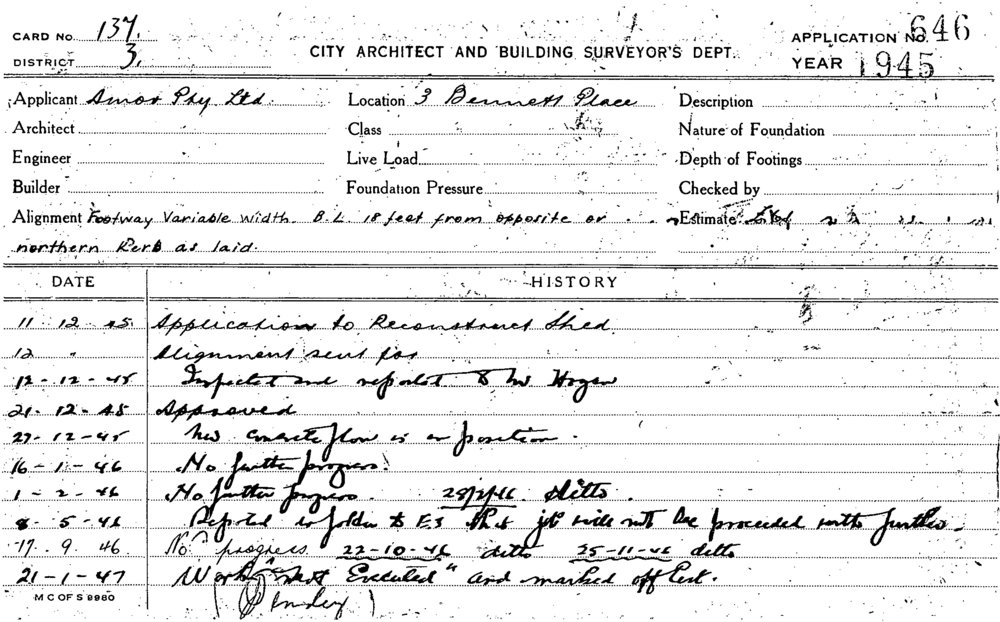 CARD No. 137.
DISTRICT 3.
CITY ARCHITECT AND BUILDING SURVEYOR'S DEPT.
APPLICATION No. 646
YEAR 1945
Applicant Amor Pty Ltd. Location 3 Bennett Place Description
Architect Class Nature of Foundation
Engineer Live Load Depth of Footings
Builder Foundation Pressure Checked by
Alignment Footway Variable width. B.L. 18 feet from opposite or Estimate
northern Kerb as laid.
DATE HISTORY
11 · 12 · 45. Application to Reconstruct Shed.
12 " Alignment sent for
12-12-45 Inspected and reported to Mr Hogan
21-12-45 Approved
27-12-45 New concrete floor is in position.
16-1-46 No further progress.
1-2-46 No further progress. 28/2/46 ditto.
8-5-46 Reported in folder to E.S that job will not be proceeded with further.
17.9.46 No progress 22-10-46 ditto 25-11-46 ditto
21-1-47 Work "Not Executed" and marked off list.
M C OF S 8980